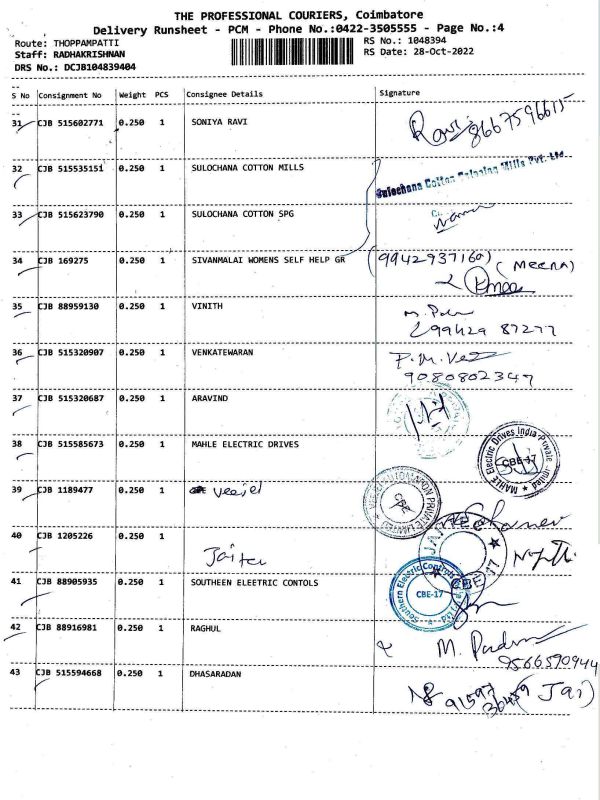 THE PROFESSIONAL COURIERS, Coimbatore
Delivery Runsheet - PCM - Phone No.:0422-3505555 - Page No.:4
Route: THOPPAMPATTI
RS No.: 1048394
Staff: RADHAKRISHNAN
RS Date: 28-Oct-2022
DRS No.: DCJB104839404
S No Consignment No Weight PCS Consignee Details Signature
31 CJB 515602771 0.250 1 SONIYA RAVI Ravi 8667596615
32 CJB 515535151 0.250 1 SULOCHANA COTTON MILLS
Sulochana Cotton Spinning Mills Pvt. Ltd
33 CJB 515623790 0.250 1 SULOCHANA COTTON SPG
34 CJB 169275 0.250 1 SIVANMALAI WOMENS SELF HELP GR 9942937160 (MEENA)
35 CJB 88959130 0.250 1 VINITH
99429 87277
36 CJB 515320907 0.250 1 VENKATEWARAN
9080802347
37 CJB 515320687 0.250 1 ARAVIND
38 CJB 515585673 0.250 1 MAHLE ELECTRIC DRIVES
MAHLE Electric Drives India Private Limited
CBE-17
39 CJB 1189477 0.250 1
PRIVATE LIMITED
CBE
40 CJB 1205226 0.250 1
CBE-17
41 CJB 88905935 0.250 1 SOUTHEEN ELEETRIC CONTOLS
Southern Electric Controls
CBE-17
42 CJB 88916981 0.250 1 RAGHUL
9566590944
43 CJB 515594668 0.250 1 DHASARADAN